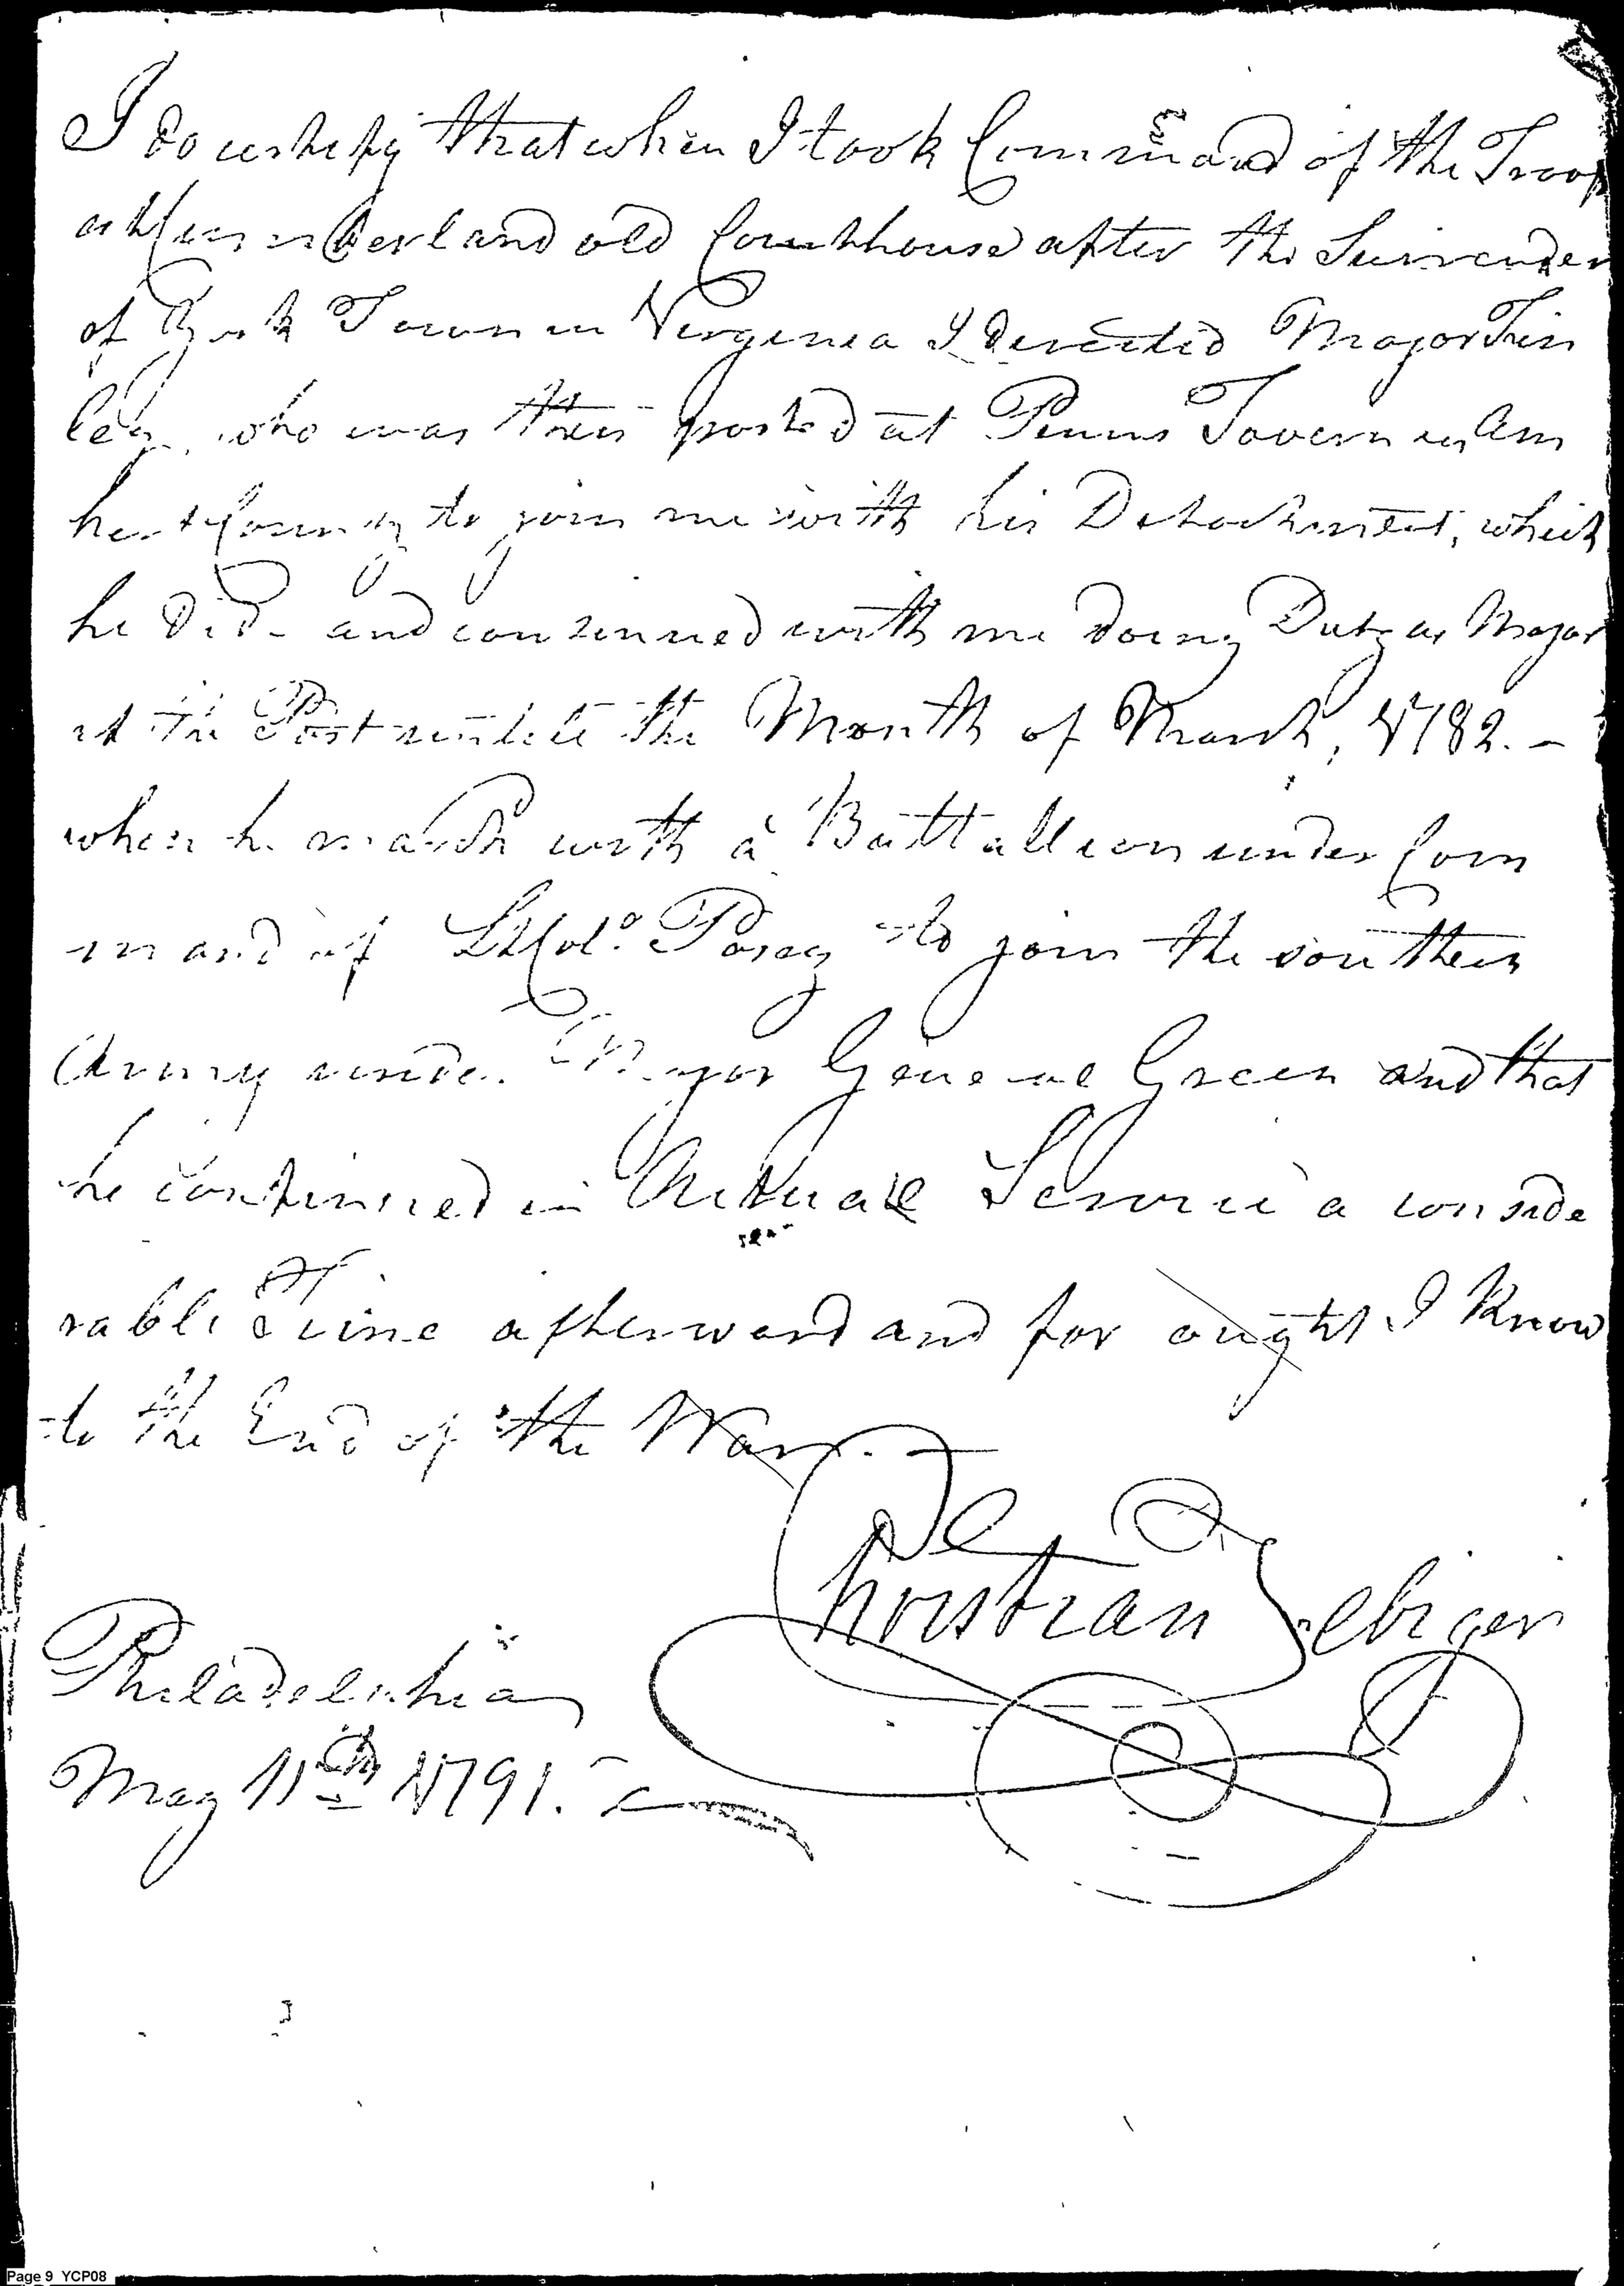 I do certify that when I took Command of the Troop
at Cumberland old Courthouse after the Surrender
of York Town in Virginia I directed Major Fin
ley, who was then posted at Penns Tavern in Am
herst County to join me with his Detachment, which
he did - and continued with me doing Duty as Major
at the Post untill the Month of March, 1782. -
when he march with a Battallion under Com
mand of Lt Colo. Posey to join the southern
Army under Major General Green and that
he continued in Actual Service a conside
rable Time afterward and for ought I Know
to the End of the War. -
Christian Febiger
Philadelphia
May 11th 1791.
Page 9 YCP08